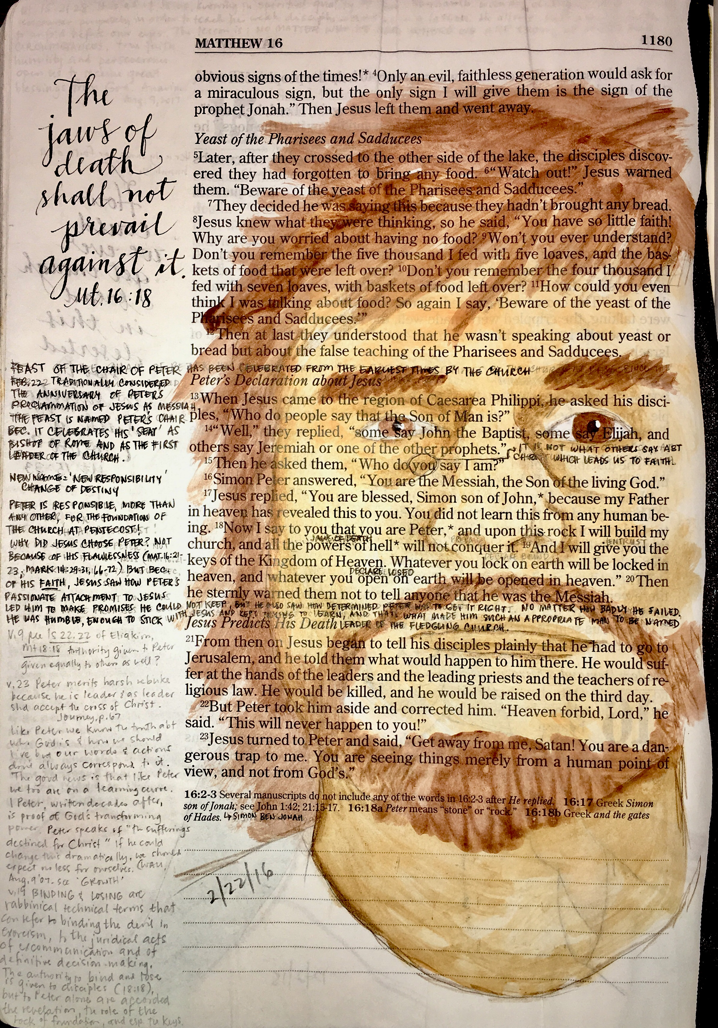 MATTHEW 16
1180
obvious signs of the times!* ⁴Only an evil, faithless generation would ask for
a miraculous sign, but the only sign I will give them is the sign of the
prophet Jonah.” Then Jesus left them and went away.
Yeast of the Pharisees and Sadducees
⁵Later, after they crossed to the other side of the lake, the disciples discov-
ered they had forgotten to bring any food. ⁶“Watch out!” Jesus warned
them. “Beware of the yeast of the Pharisees and Sadducees.”
⁷They decided he was saying this because they hadn’t brought any bread.
⁸Jesus knew what they were thinking, so he said, “You have so little faith!
Why are you worried about having no food? ⁹Won’t you ever understand?
Don’t you remember the five thousand I fed with five loaves, and the bas-
kets of food that were left over? ¹⁰Don’t you remember the four thousand I
fed with seven loaves, with baskets of food left over? ¹¹How could you even
think I was talking about food? So again I say, ‘Beware of the yeast of the
Pharisees and Sadducees.’”
¹²Then at last they understood that he wasn’t speaking about yeast or
bread but about the false teaching of the Pharisees and Sadducees.
Peter’s Declaration about Jesus
¹³When Jesus came to the region of Caesarea Philippi, he asked his disci-
ples, “Who do people say that the Son of Man is?”
¹⁴“Well,” they replied, “some say John the Baptist, some say Elijah, and
others say Jeremiah or one of the other prophets.”
¹⁵Then he asked them, “Who do you say I am?”
¹⁶Simon Peter answered, “You are the Messiah, the Son of the living God.”
¹⁷Jesus replied, “You are blessed, Simon son of John,* because my Father
in heaven has revealed this to you. You did not learn this from any human be-
ing. ¹⁸Now I say to you that you are Peter,* and upon this rock I will build my
church, and all the powers of hell* will not conquer it. ¹⁹And I will give you the
keys of the Kingdom of Heaven. Whatever you lock on earth will be locked in
heaven, and whatever you open on earth will be opened in heaven.” ²⁰Then
he sternly warned them not to tell anyone that he was the Messiah.
Jesus Predicts His Death
²¹From then on Jesus began to tell his disciples plainly that he had to go to
Jerusalem, and he told them what would happen to him there. He would suf-
fer at the hands of the leaders and the leading priests and the teachers of re-
ligious law. He would be killed, and he would be raised on the third day.
²²But Peter took him aside and corrected him. “Heaven forbid, Lord,” he
said. “This will never happen to you!”
²³Jesus turned to Peter and said, “Get away from me, Satan! You are a dan-
gerous trap to me. You are seeing things merely from a human point of
view, and not from God’s.”
16:2-3 Several manuscripts do not include any of the words in 16:2-3 after He replied. 16:17 Greek Simon
son of Jonah; see John 1:42; 21:15-17. 16:18a Peter means “stone” or “rock.” 16:18b Greek and the gates
of Hades. ↳ SIMON BEN JONAH
The
jaws of
death
shall not
prevail
against it.
Mt. 16:18
FEAST OF THE CHAIR OF PETER HAS BEEN CELEBRATED FROM THE EARLIEST TIMES BY THE CHURCH
FEB. 22. TRADITIONALLY CONSIDERED
THE ANNIVERSARY OF PETER'S
PROCLAMATION OF JESUS AS MESSIAH
THE FEAST IS NAMED PETER'S CHAIR
BEC. IT CELEBRATES HIS 'SEAT' AS
BISHOP OF ROME AND AS THE FIRST
LEADER OF THE CHURCH.
NEW NAME = 'NEW RESPONSIBILITY'
CHANGE OF DESTINY
PETER IS RESPONSIBLE, MORE THAN
ANY OTHER, FOR THE FOUNDATION OF
THE CHURCH AT PENTECOST!
WHY DID JESUS CHOOSE PETER? NOT
BECAUSE OF HIS FLAWLESSNESS (MAT. 16:21-
23, MARK 14:29-31, 66-72) BUT BEC.
OF HIS FAITH, JESUS SAW HOW PETER'S
PASSIONATE ATTACHMENT TO JESUS
LED HIM TO MAKE PROMISES HE COULD NOT KEEP, BUT HE ALSO SAW HOW DETERMINED PETER WAS TO GET IT RIGHT. NO MATTER HOW BADLY HE FAILED,
HE WAS HUMBLE, ENOUGH TO STICK WITH JESUS AND KEPT TRYING TO LEARN, AND THAT'S WHAT MADE HIM SUCH AN APPROPRIATE MAN TO BE NAMED
LEADER OF THE FLEDGLING CHURCH.
IT IS NOT WHAT OTHERS SAY ABT
CHRIST WHICH LEADS US TO FAITH.
JAWS OF DEATH
DECLARE
v. 23 Peter merits harsh rebuke
because he is leader & as leader
must accept the cross of Christ.
Journey, p. 67
Like Peter we know the truth abt
who God is & how we should
live but our words & actions
don't always correspond to it.
The good news is that like Peter
we too are on a learning curve.
1 Peter, written decades after,
is proof of God's transforming
power. Peter speaks of "the sufferings
destined for Christ" If he could
change that dramatically, we should
expect no less for ourselves.
v. 19 BINDING & LOSING are
rabbinical technical terms that
can refer to binding the devil in
exorcism, to the juridical acts
of excommunication and of
definitive decision-making.
The authority to bind and lose
is given to disciples (18:18),
but to Peter alone are accorded
the revelation, the role of the
rock of foundation, and esp. the keys.
2/22/16